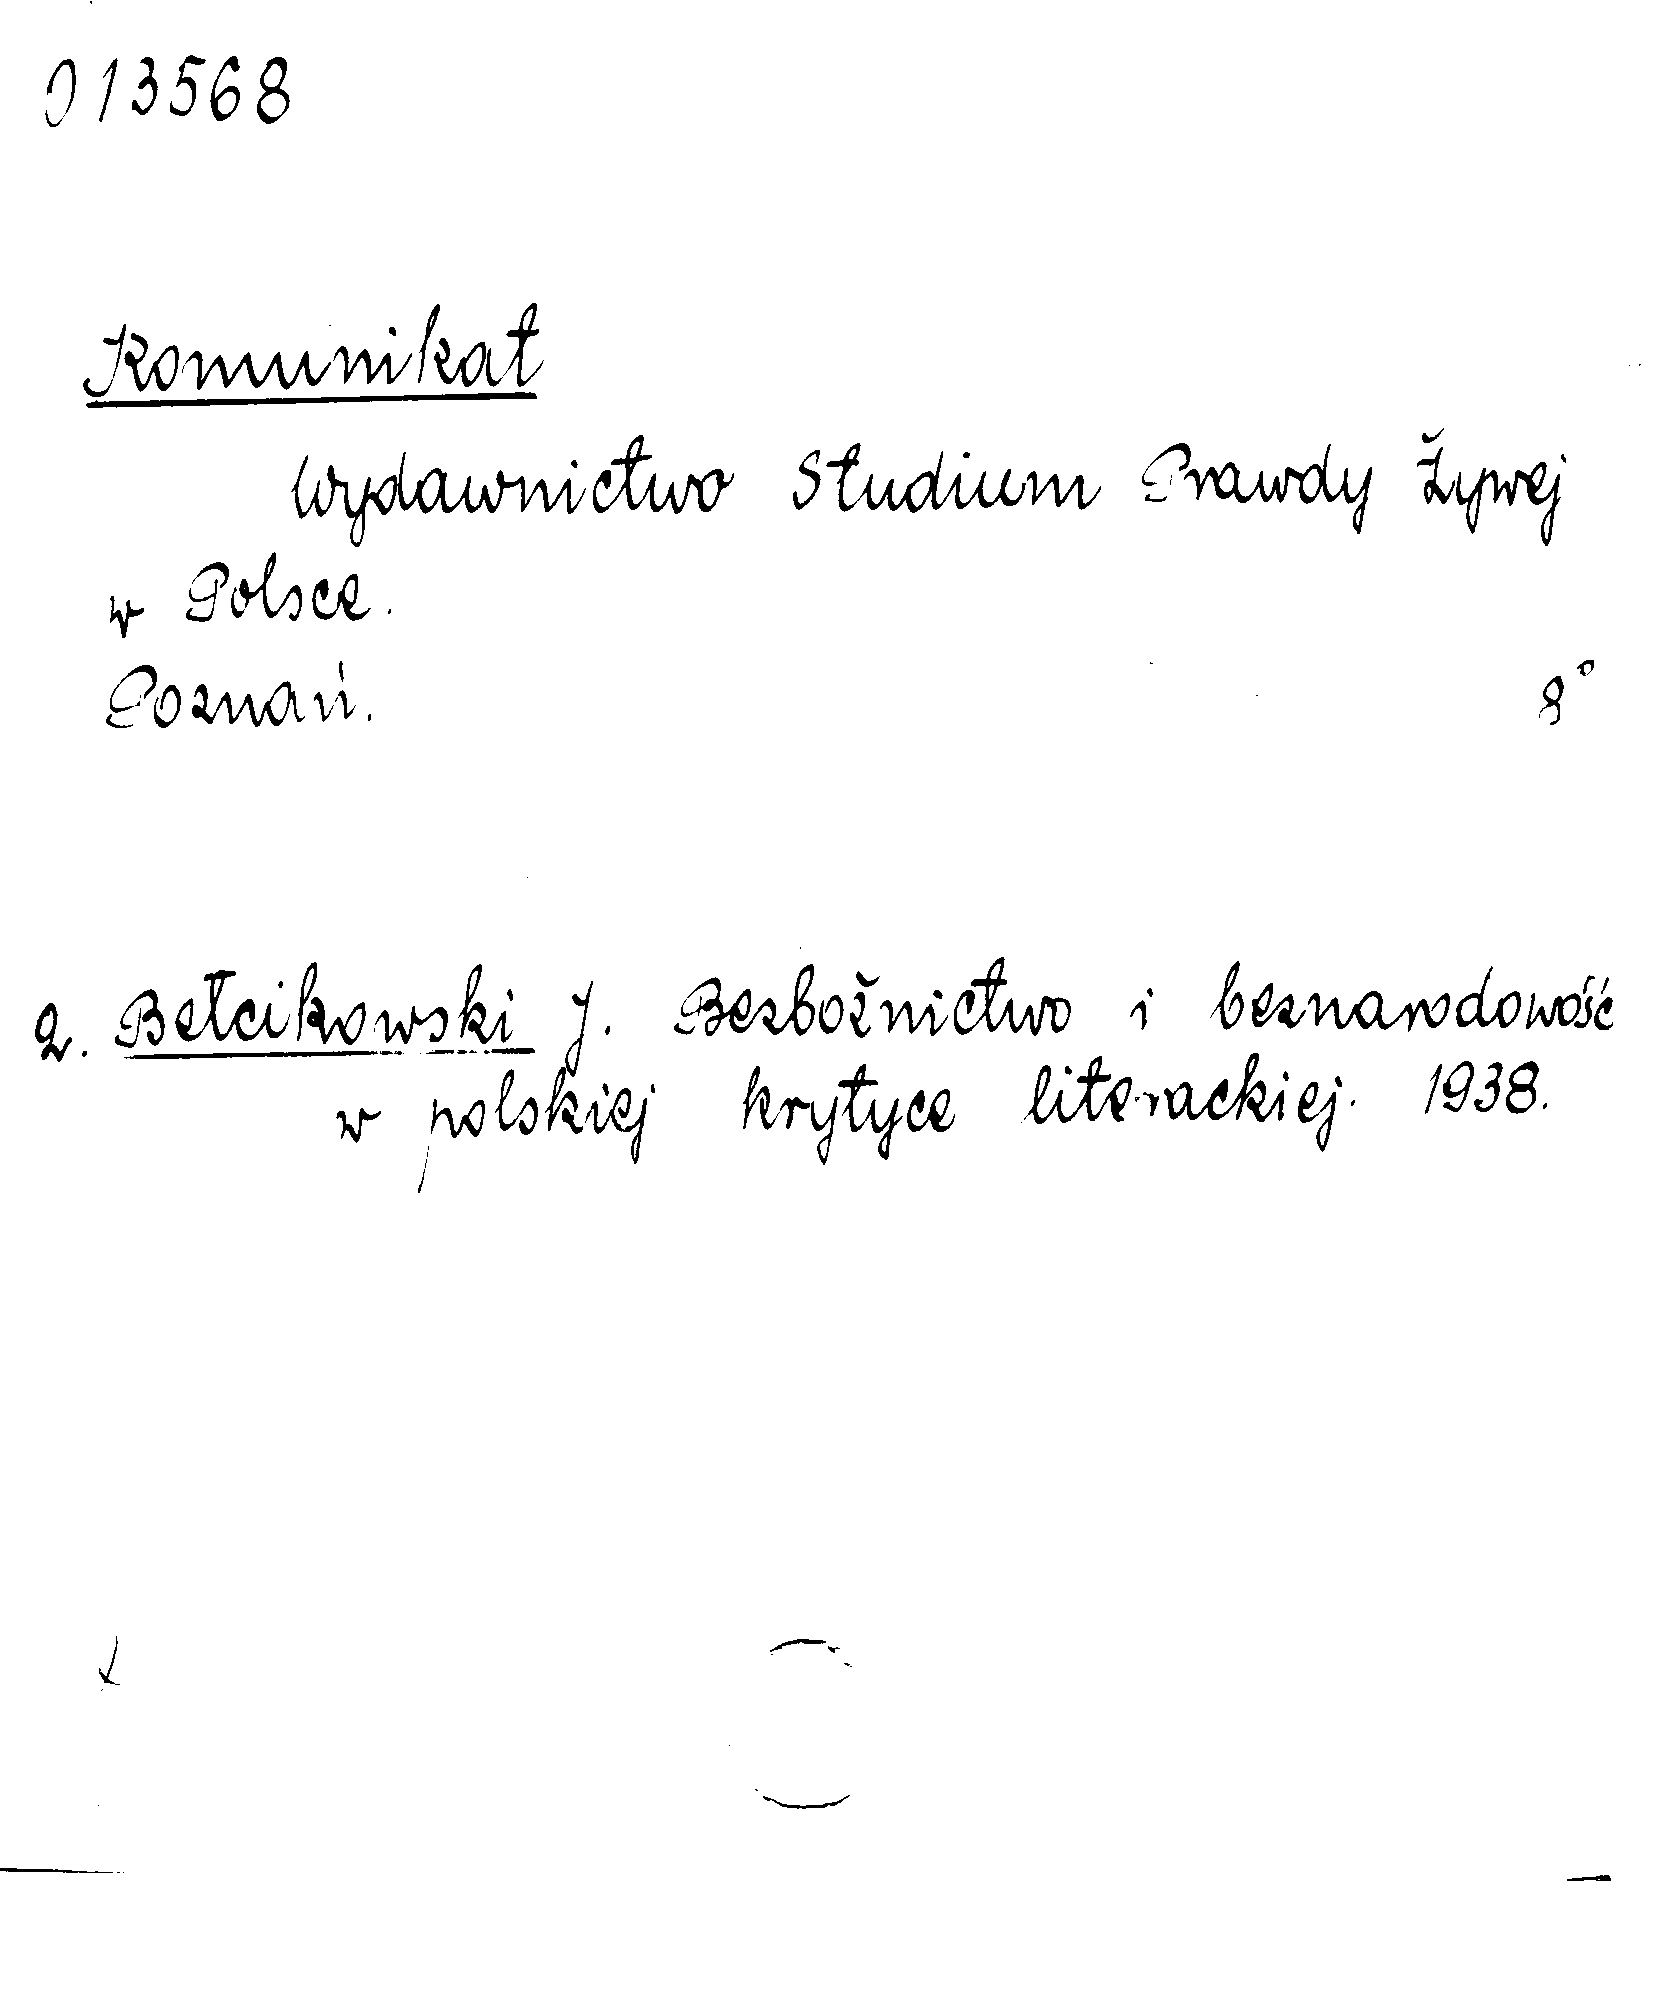 013568
Komunikat
Wydawnictwo Studium Prawdy Żywej
w Polsce.
Poznań. 8°
2. Bełcikowski J. Bezbożnictwo i beznarodowość
w polskiej krytyce literackiej. 1938.